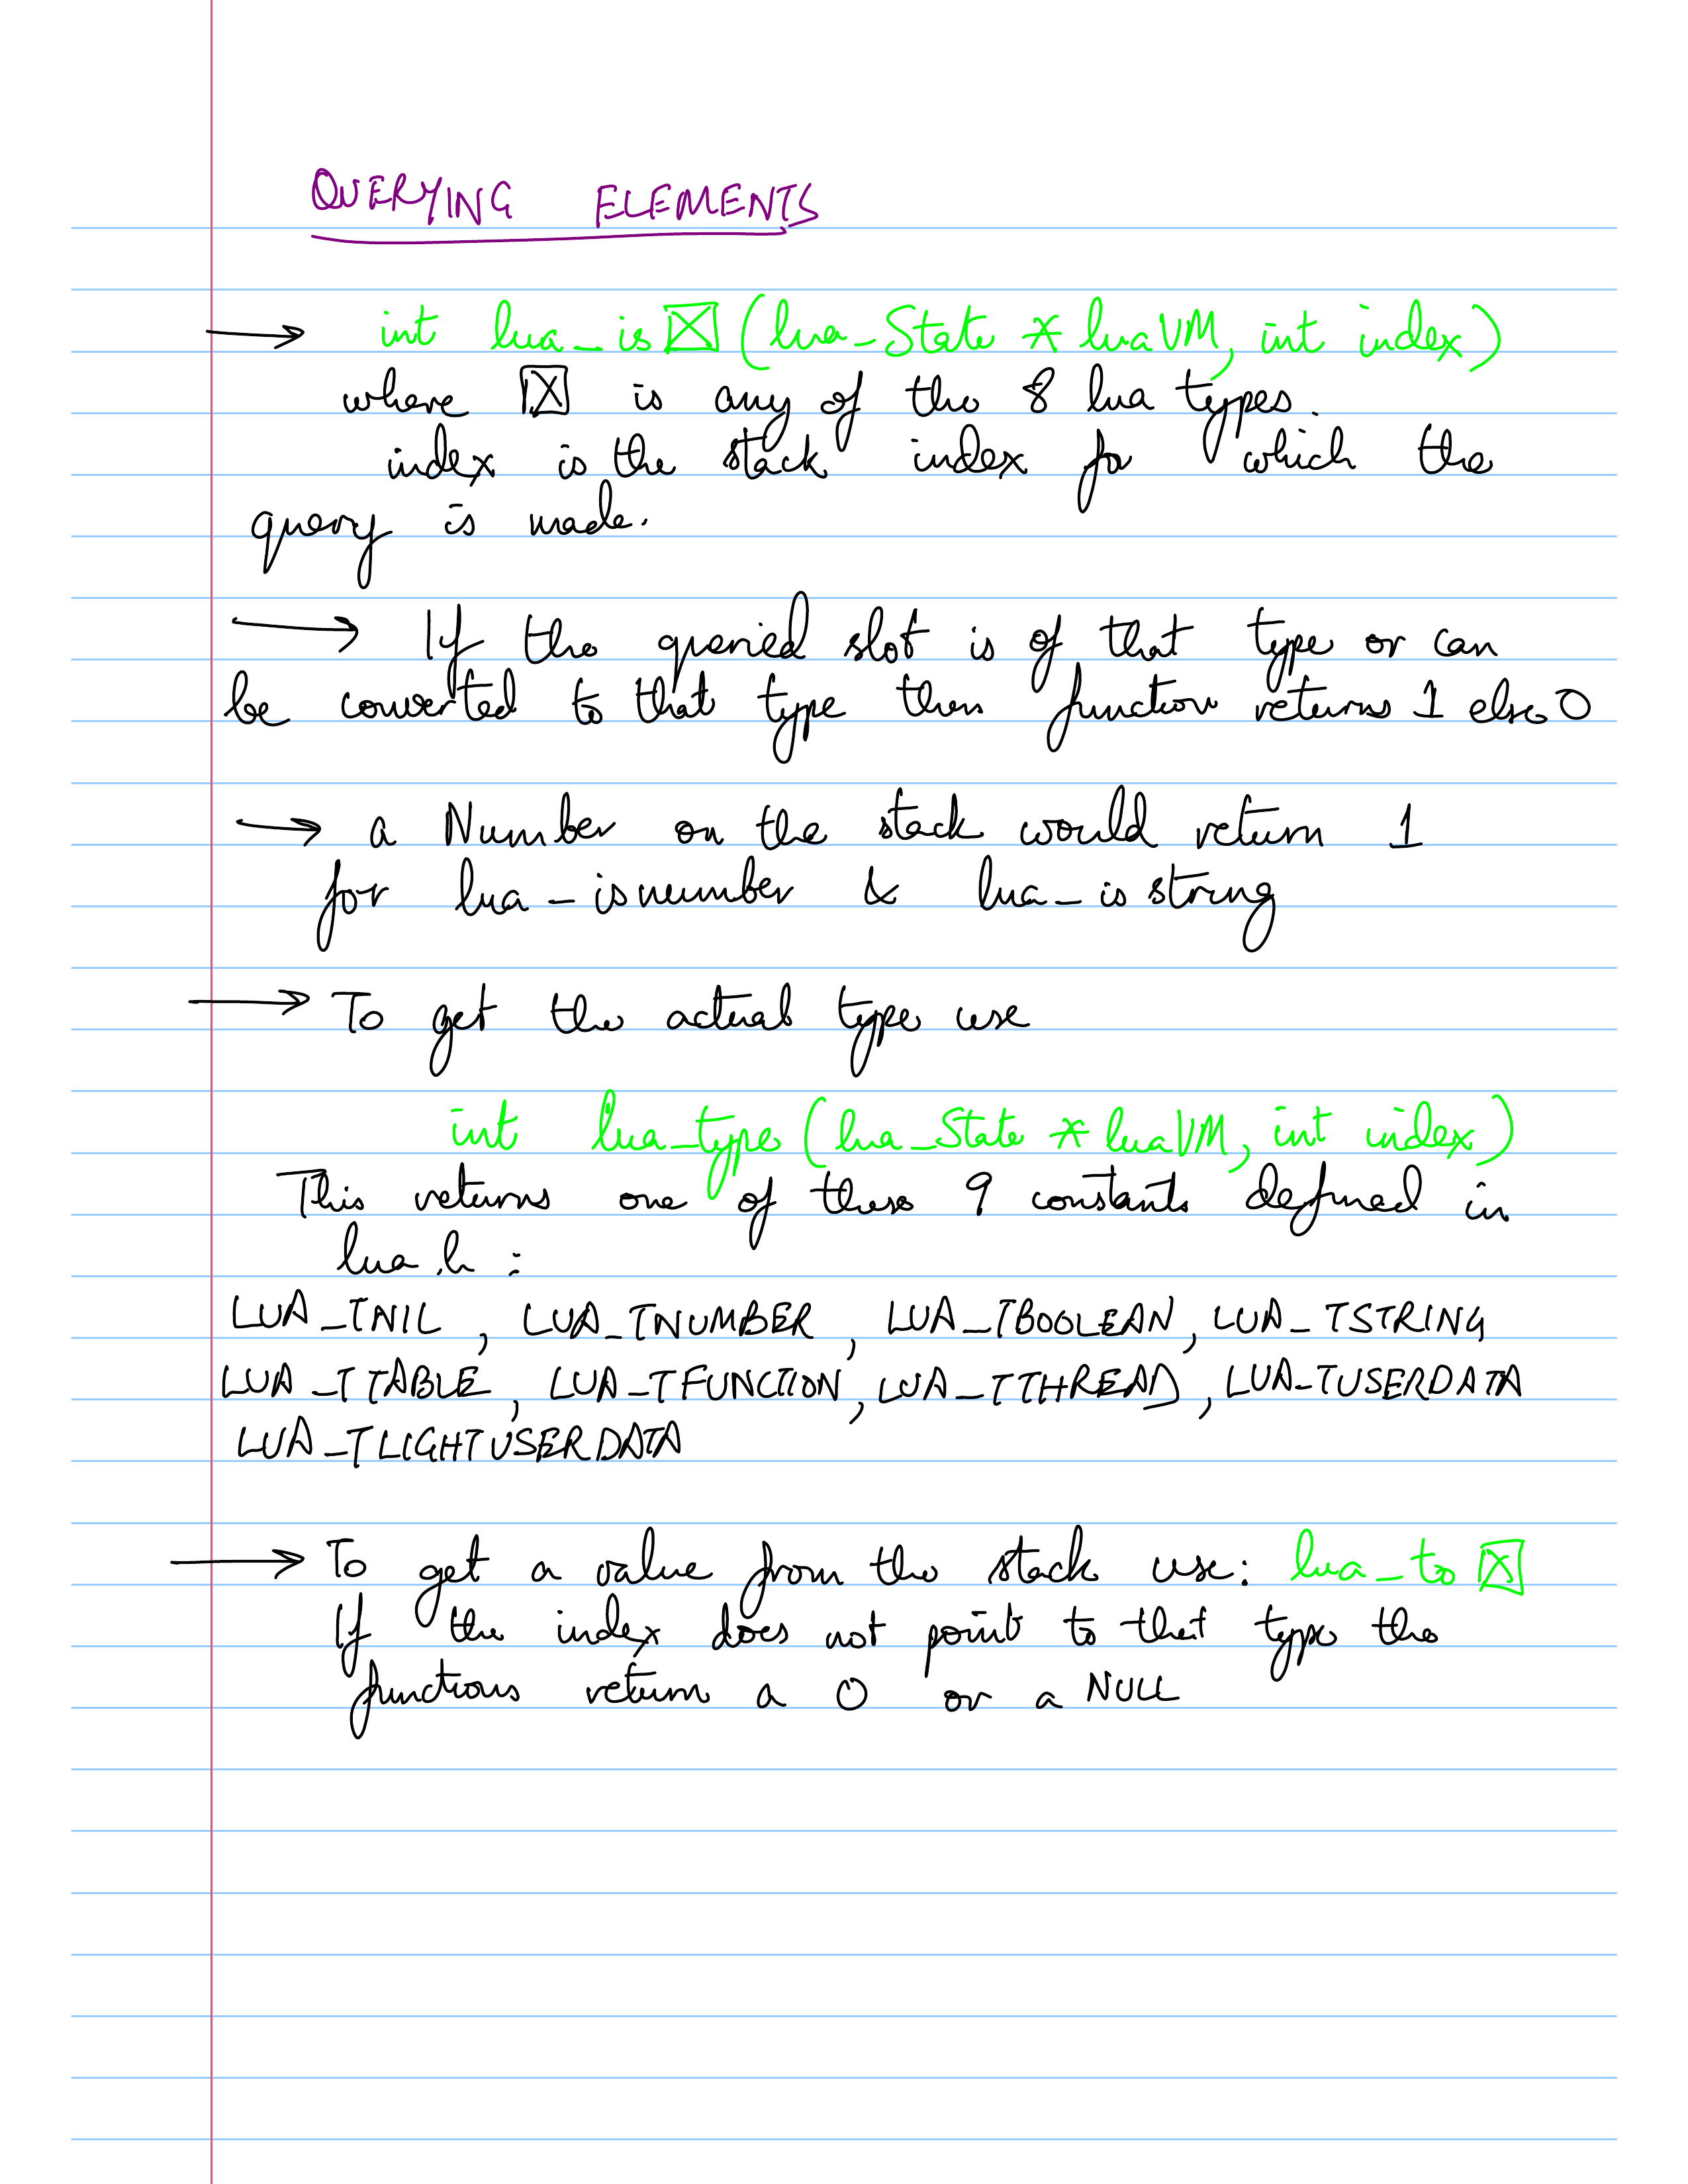 QUERYING ELEMENTS
→ int lua_is☒(lua_State *luaVM, int index)
where ☒ is any of the 8 lua types.
index is the stack index for which the
query is made.
→ If the queried slot is of that type or can
be converted to that type then function returns 1 else 0
→ a Number on the stack would return 1
for lua_isnumber & lua_isstring
→ To get the actual type use
int lua_type(lua_State *luaVM, int index)
This returns one of these 9 constants defined in
lua.h :
LUA_TNIL, LUA_TNUMBER, LUA_TBOOLEAN, LUA_TSTRING
LUA_TTABLE, LUA_TFUNCTION, LUA_TTHREAD, LUA_TUSERDATA
LUA_TLIGHTUSERDATA
→ To get a value from the stack use: lua_to☒
If the index does not point to that type the
functions return a 0 or a NULL